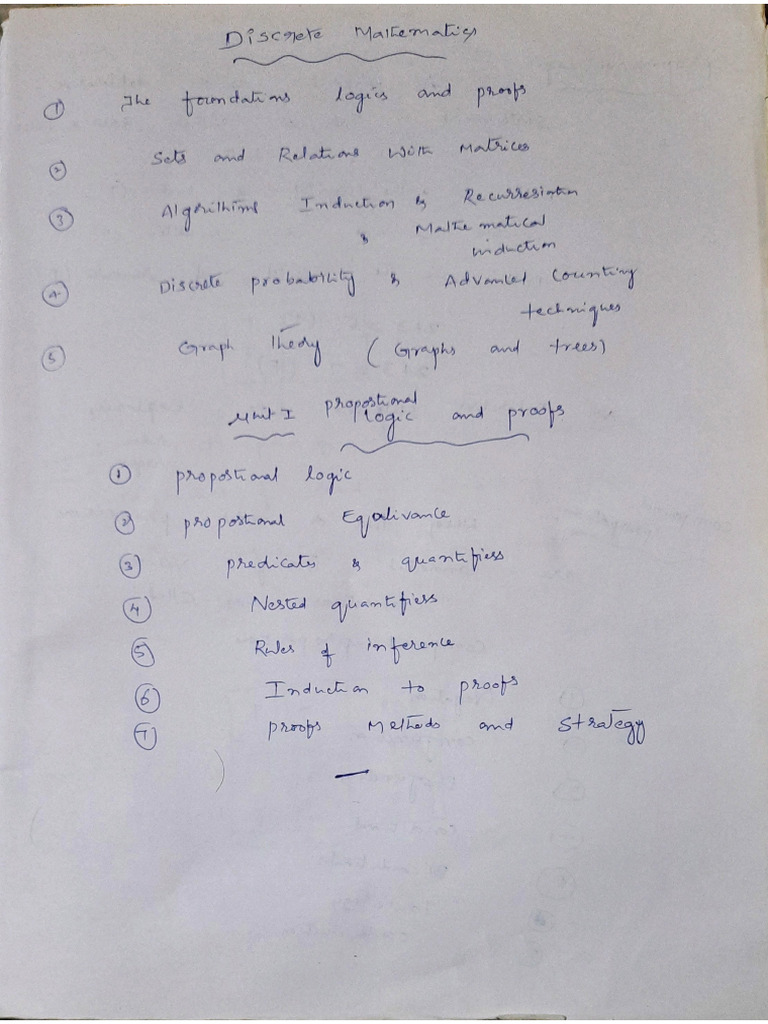 Discrete Mathematics
① The foundations logics and proofs
② Sets and Relations With Matrices
③ Algorithims Induction & Recurresiation
& Mathematical
induction
④ Discrete probability & Advanced Counting
techniques
⑤ Graph Theory (Graphs and trees)
Unit I propostional logic and proofs
① propostional logic
② propostional Eqalivance
③ predicates & quantifiess
④ Nested quantifiess
⑤ Rules of inference
⑥ Induction to proofs
⑦ proofs Methods and Strategy